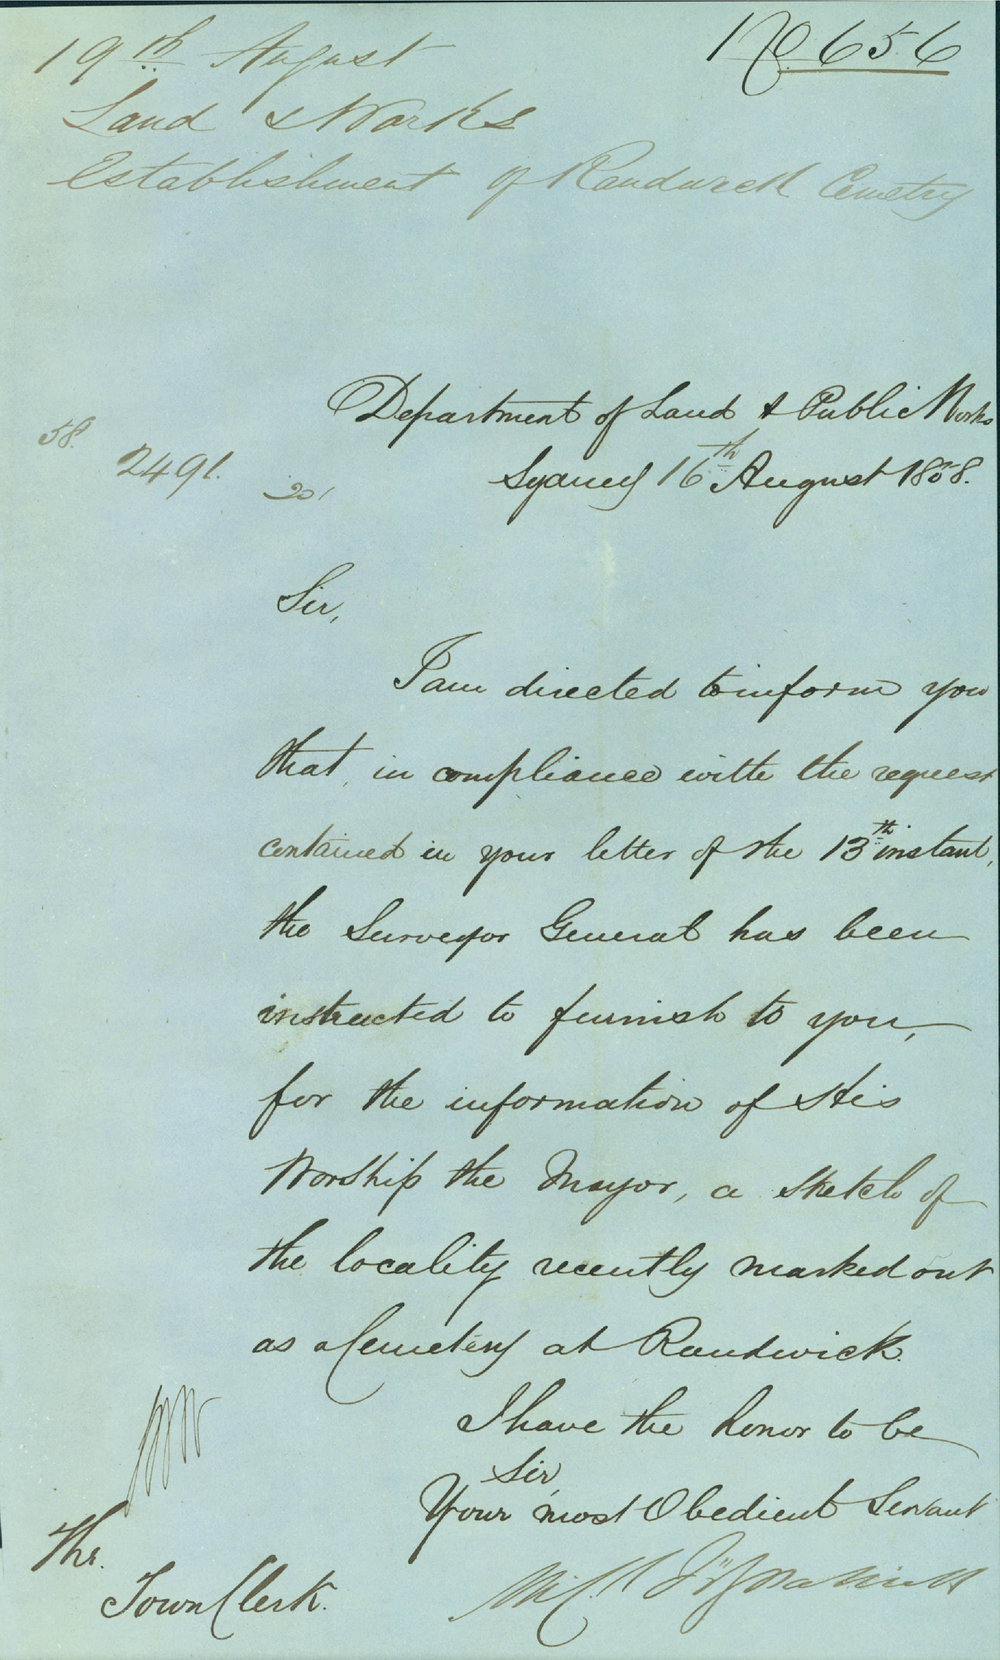 No 656
19th August
Land & Works
Establishment of Randwick Cemetry
Department of Land & Public Works
58.
2491.
Sydney 16th August 1858.
201
Sir,
I am directed to inform you
that, in compliance with the request
contained in your letter of the 13th instant,
the Surveyor General has been
instructed to furnish to you,
for the information of His
Worship the Mayor, a sketch of
the locality recently marked out
as a Cemetery at Randwick.
I have the honor to be
Sir,
Your most Obedient Servant
Mich Fitzpatrick
The
Town Clerk.